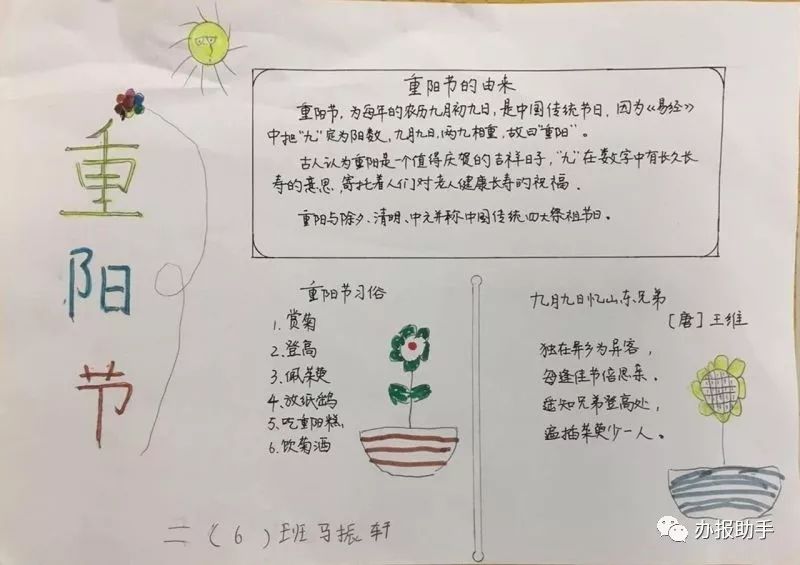 重阳节
重阳节的由来
重阳节，为每年的农历九月初九日，是中国传统节日，因为《易经》
中把“九”定为阳数，九月九日，两九相重，故曰“重阳”。
古人认为重阳是一个值得庆贺的吉祥日子，“九”在数字中有长久长
寿的意思，寄托着人们对老人健康长寿的祝福．
重阳与除夕、清明、中元并称中国传统四大祭祖节日。
重阳节习俗
1.赏菊
2.登高
3.佩茱萸
4.放纸鹞
5.吃重阳糕
6.饮菊酒
九月九日忆山东兄弟
［唐］王维
独在异乡为异客，
每逢佳节倍思亲．
遥知兄弟登高处，
遍插茱萸少一人。
二（6）班马振轩
办报助手